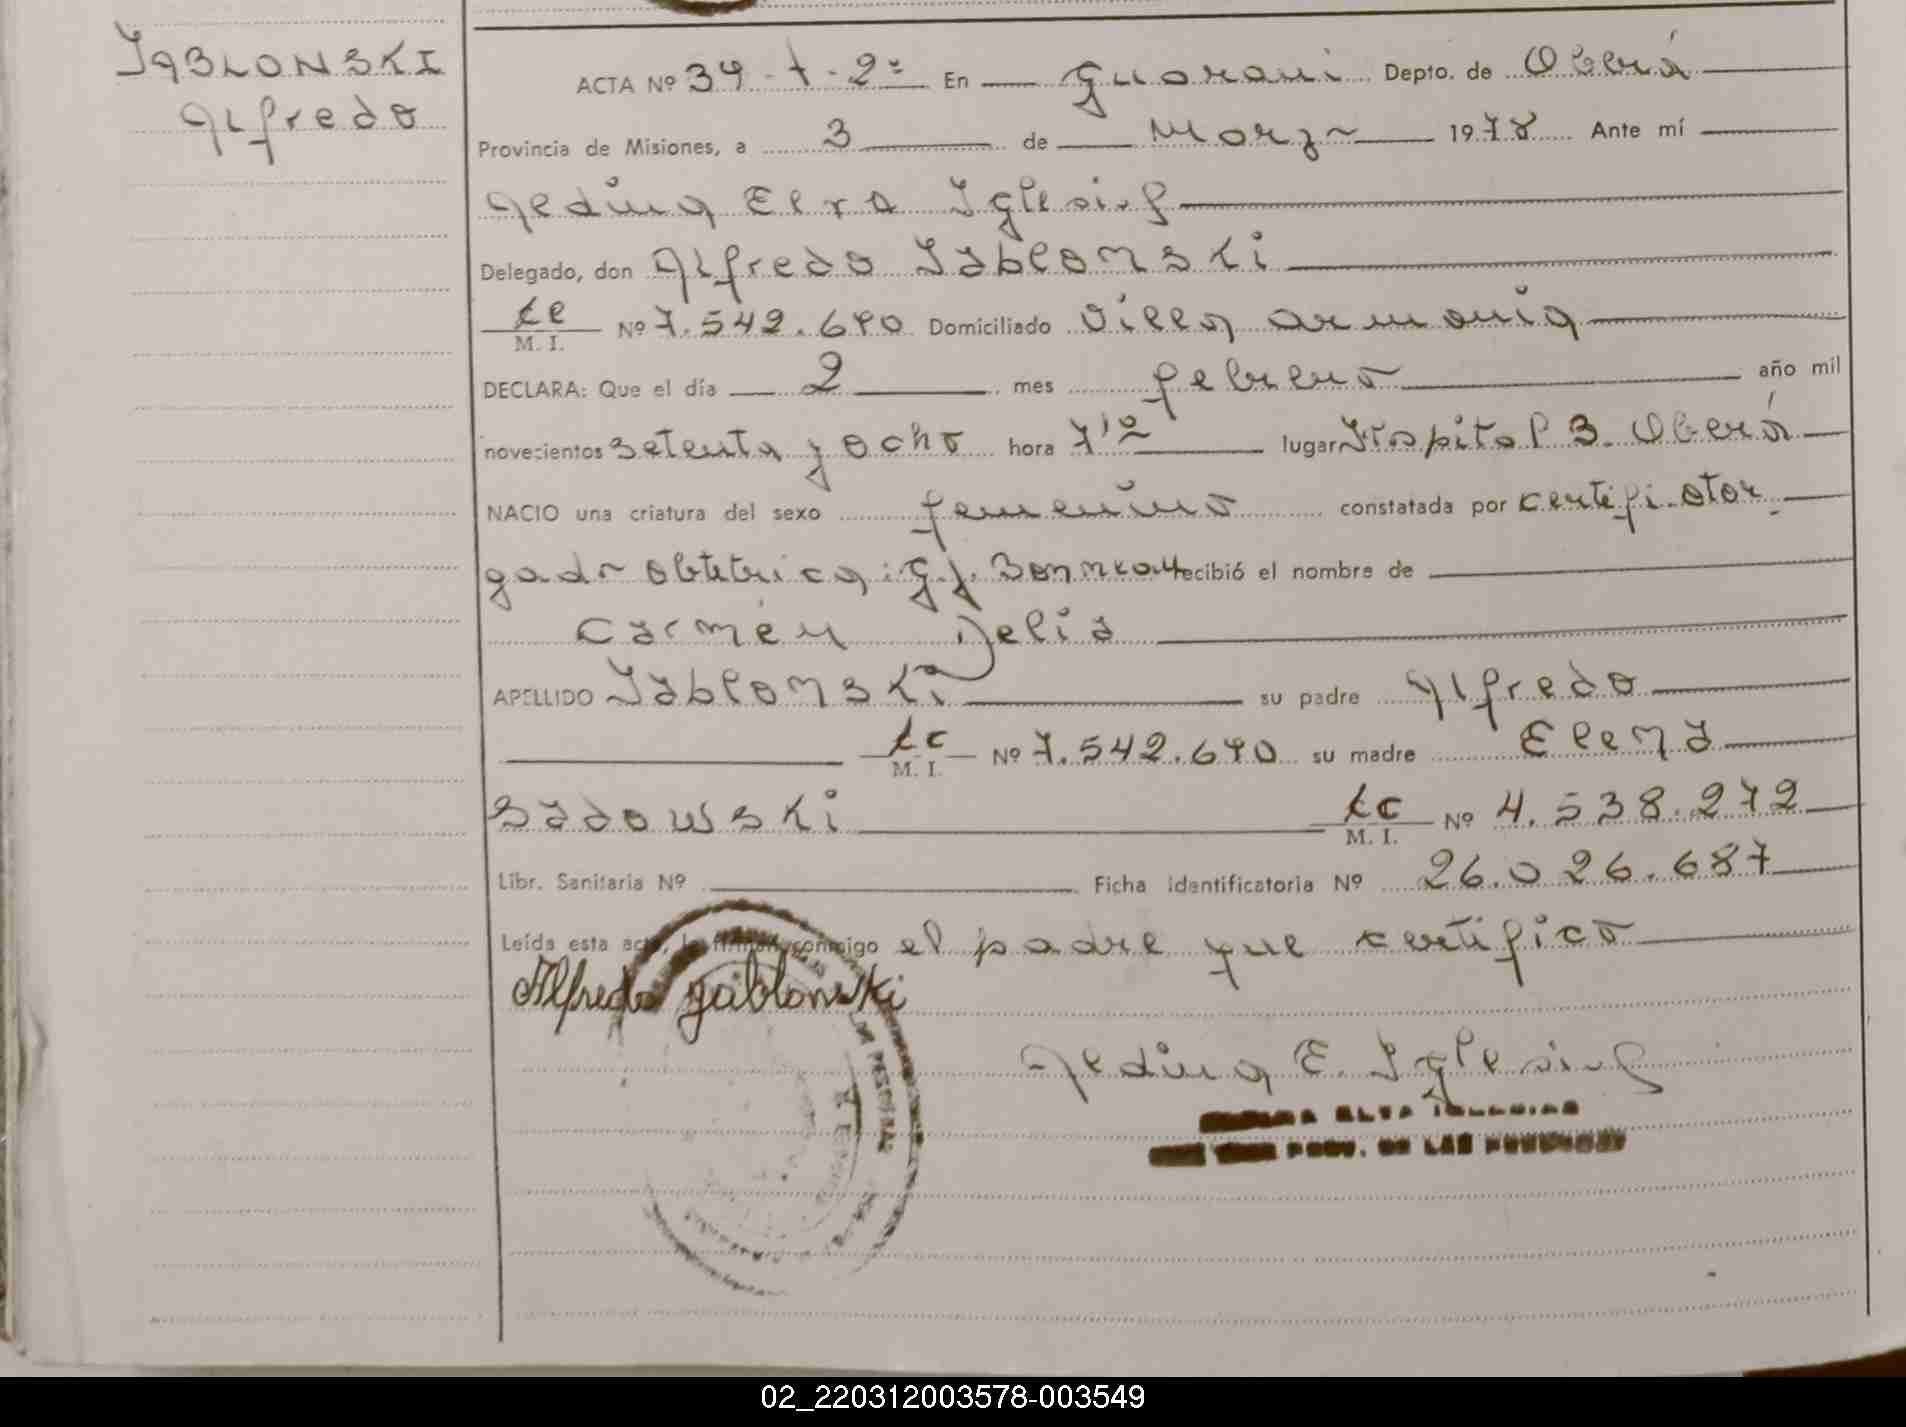 JABLONSKI
Alfredo
ACTA Nº 34-t-2º En Guarani Depto. de Oberá
Provincia de Misiones, a 3 de Marzo 1978 Ante mí
Nedina Elva Iglesias
Delegado, don Alfredo Jablonski
LE M. I. Nº 7.542.690 Domiciliado Villa Armonia
DECLARA: Que el día 2 mes febrero año mil
novecientos setenta y ocho hora 7 lugar Hospital B. Oberá
NACIO una criatura del sexo femenino constatada por certifi. otor
gado obtetrica: G. J. recibió el nombre de
Carmen Delia
APELLIDO Jablonski su padre Alfredo
LE M. I. Nº 7.542.690 su madre Elena
Sadowski LC M. I. Nº 4.538.272
Libr. Sanitaria Nº Ficha identificatoria Nº 26.026.687
Leída esta acta, la firman conmigo el padre que certifico
Alfredo Jablonski
Nedina E. Iglesias
ELVA IGLESIAS
DE LAS PERSONAS
02_220312003578-003549